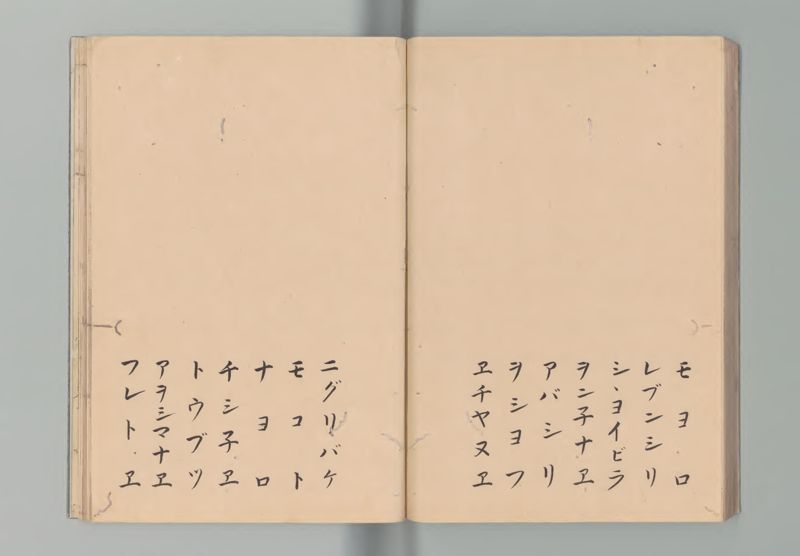 モヨロ
レブンシリ
シヽヨイビラ
ヲン子ナヱ
アバシリ
ヲショフ
ヱチヤヌヱ
ニグリバケ
モコト
ナヨロ
チシ子ヱ
トウブツ
アヲシマナヱ
フレトヱ